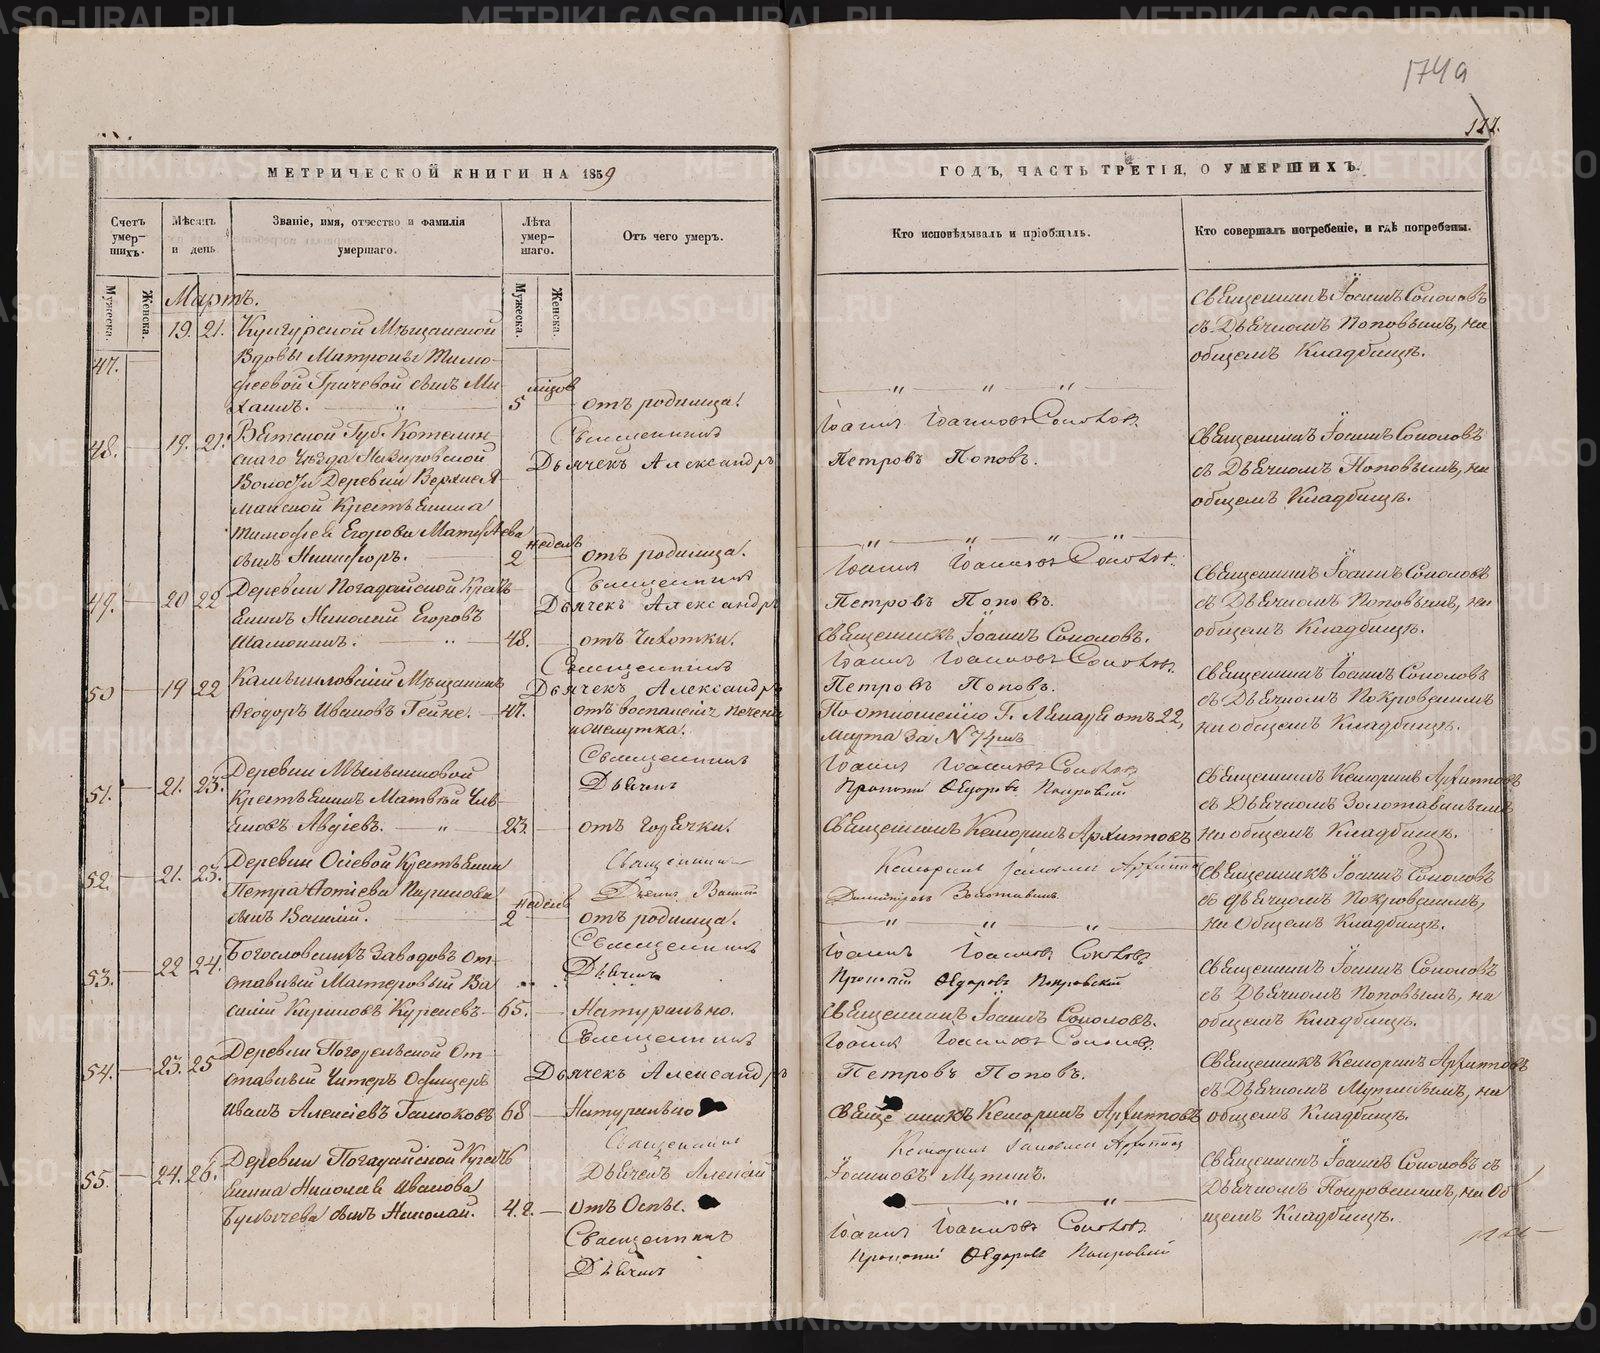 174 а
122.
МЕТРИЧЕСКОЙ КНИГИ НА 1859
Счетъ умер-шихъ.
Мѣсяцъ и день
Званіе, имя, отчество и фамилія умершаго.
Лѣта умер-шаго.
Отъ чего умеръ.
Мужеска.
Женска.
Мужеска.
Женска.
Мартъ.
47. 19. 21. Кунгурской Мѣщанской
Вдовы Матроны Тимо-
феевой Гричевой сынъ Ми-
хаилъ. 5 отъ родимца.
48. 19. 21. Вятской Губ. Котельни-
скаго Уѣзда
Волости Деревни
Крестьянина
Тимофея Егорова Матвѣева
сынъ Никифоръ. 2 недель отъ родимца.
Священникъ
Дьячекъ Александръ
49. 20 22 Деревни Погадайской Кресть-
янинъ Николай Егоровъ
48. отъ Чихотки.
Священникъ
Дьячекъ Александръ
50 19 22 Камышловскій Мѣщанинъ
Феодоръ Ивановъ Гейне. 47. отъ воспаленія печени
и желутка.
Священникъ
Дьячекъ Александръ
51. 21. 23. Деревни Мельниковой
Крестьянинъ Матвѣй
Авдіевъ. 23. отъ Горячки.
Священникъ
Дьячекъ
52. 21. 23. Деревни Осіевой Крестьянина
Петра Фотіева Кирилова
сынъ Василій. 2 недель отъ родимца.
Священникъ
53. 22 24. Богословскихъ Заводовъ От-
ставный Мастеровый Ва-
силій Кириловъ Куреневъ 65. Натурально.
Священникъ
Дьячекъ
54. 23. 25 Деревни Погорельской От-
ставный Унтеръ Офицеръ
Иванъ Алексіевъ 68 Натурально
Священникъ
Дьячекъ Александръ
55. 24. 26. Деревни Погадайской Кресть-
янина Николая Иванова
Булычева сынъ Николай. отъ Оспы.
Священникъ
Дьячекъ Алексій
Священникъ
Дьячекъ
ГОДЪ, ЧАСТЬ ТРЕТІЯ, О УМЕРШИХЪ.
Кто исповѣдывалъ и пріобщалъ.
Кто совершалъ погребеніе, и гдѣ погребены.
Священникъ Іоаннъ Соколовъ
съ Дьячкомъ Поповымъ, на
общемъ Кладбищѣ.
Іоаннъ Іоанновъ Соколовъ
Петровъ Поповъ.
Священникъ Іоаннъ Соколовъ
съ Дьячкомъ Поповымъ, на
общемъ Кладбищѣ.
Іоаннъ Іоанновъ Соколовъ
Петровъ Поповъ.
Священникъ Іоаннъ Соколовъ.
Священникъ Іоаннъ Соколовъ
съ Дьячкомъ Поповымъ, на
общемъ Кладбищѣ.
Іоаннъ Іоанновъ Соколовъ
Петровъ Поповъ.
По отношенію Г. Лекаря отъ 22,
Марта за №
Священникъ Іоаннъ Соколовъ
съ Дьячкомъ Покровскимъ
на общемъ Кладбищѣ.
Іоаннъ Іоанновъ Соколовъ
Прокопій Ѳедоровъ Покровскій
Священникъ Кенсоринъ Архипповъ
Священникъ Кенсоринъ Архипповъ
съ Дьячкомъ Золотавинымъ
на общемъ Кладбищѣ.
Священникъ Іоаннъ Соколовъ
съ Дьячкомъ Покровскимъ,
на Общемъ Кладбищѣ.
Іоаннъ Іоанновъ Соколовъ
Прокопій Ѳедоровъ Покровскій
Священникъ Іоаннъ Соколовъ.
Священникъ Іоаннъ Соколовъ
съ Дьячкомъ Поповымъ, на
общемъ Кладбищѣ.
Іоаннъ Іоанновъ Соколовъ
Петровъ Поповъ.
Священникъ Кенсоринъ Архипповъ
Священникъ Кенсоринъ Архипповъ
съ Дьячкомъ Мутинымъ, на
общемъ Кладбищѣ.
Іоанновъ Мутинъ.
Священникъ Іоаннъ Соколовъ съ
Дьячкомъ Покровскимъ, на Об
щемъ Кладбищѣ.
Іоаннъ Іоанновъ Соколовъ
Прокопій Ѳедоровъ Покровскій
METRIKI.GASO-URAL.RU